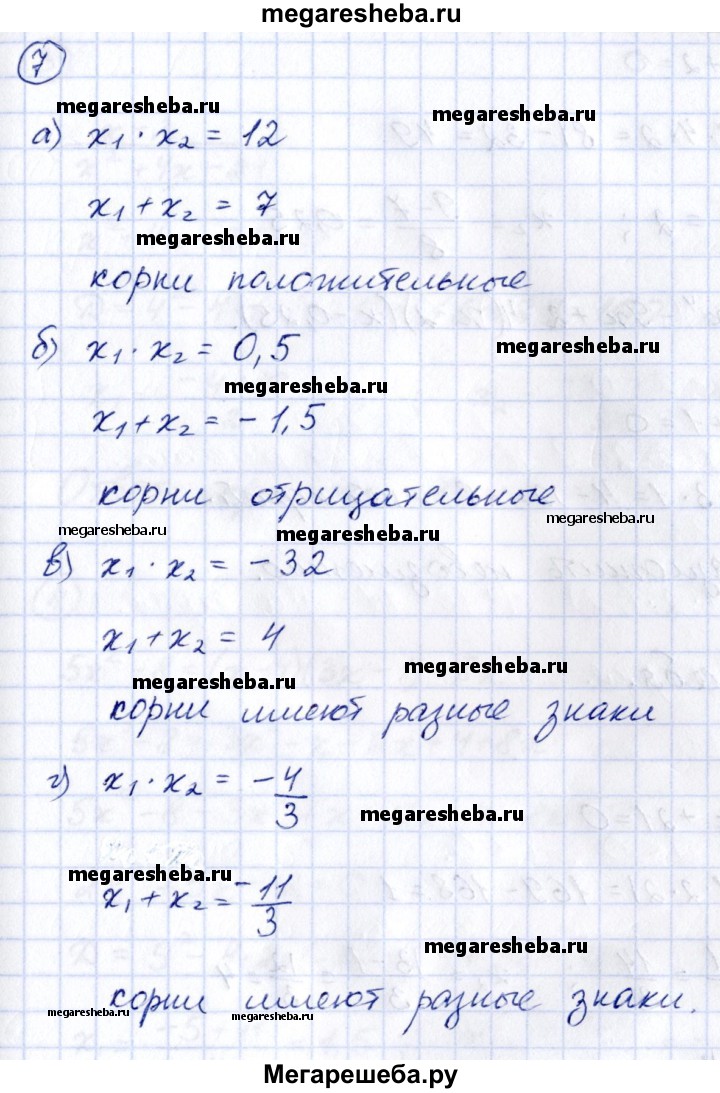 megaresheba.ru
7
megaresheba.ru
megaresheba.ru
а) x₁ · x₂ = 12
x₁ + x₂ = 7
megaresheba.ru
корни положительные
б) x₁ · x₂ = 0,5
megaresheba.ru
megaresheba.ru
x₁ + x₂ = - 1,5
корни отрицательные
megaresheba.ru
megaresheba.ru
megaresheba.ru
в) x₁ · x₂ = - 32
x₁ + x₂ = 4
megaresheba.ru
megaresheba.ru
корни имеют разные знаки
г) x₁ · x₂ = -4/3
megaresheba.ru
megaresheba.ru
x₁ + x₂ = -11/3
megaresheba.ru
корни имеют разные знаки.
megaresheba.ru
megaresheba.ru
Мегарешеба.ру